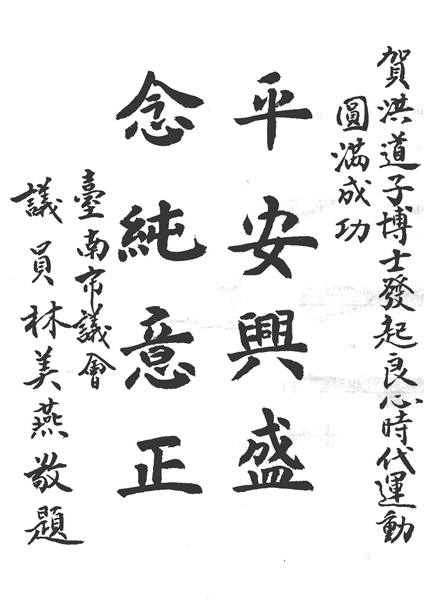 賀洪道子博士發起良心時代運動
圓滿成功
平安興盛
念純意正
臺南市議會
議員林美燕敬題